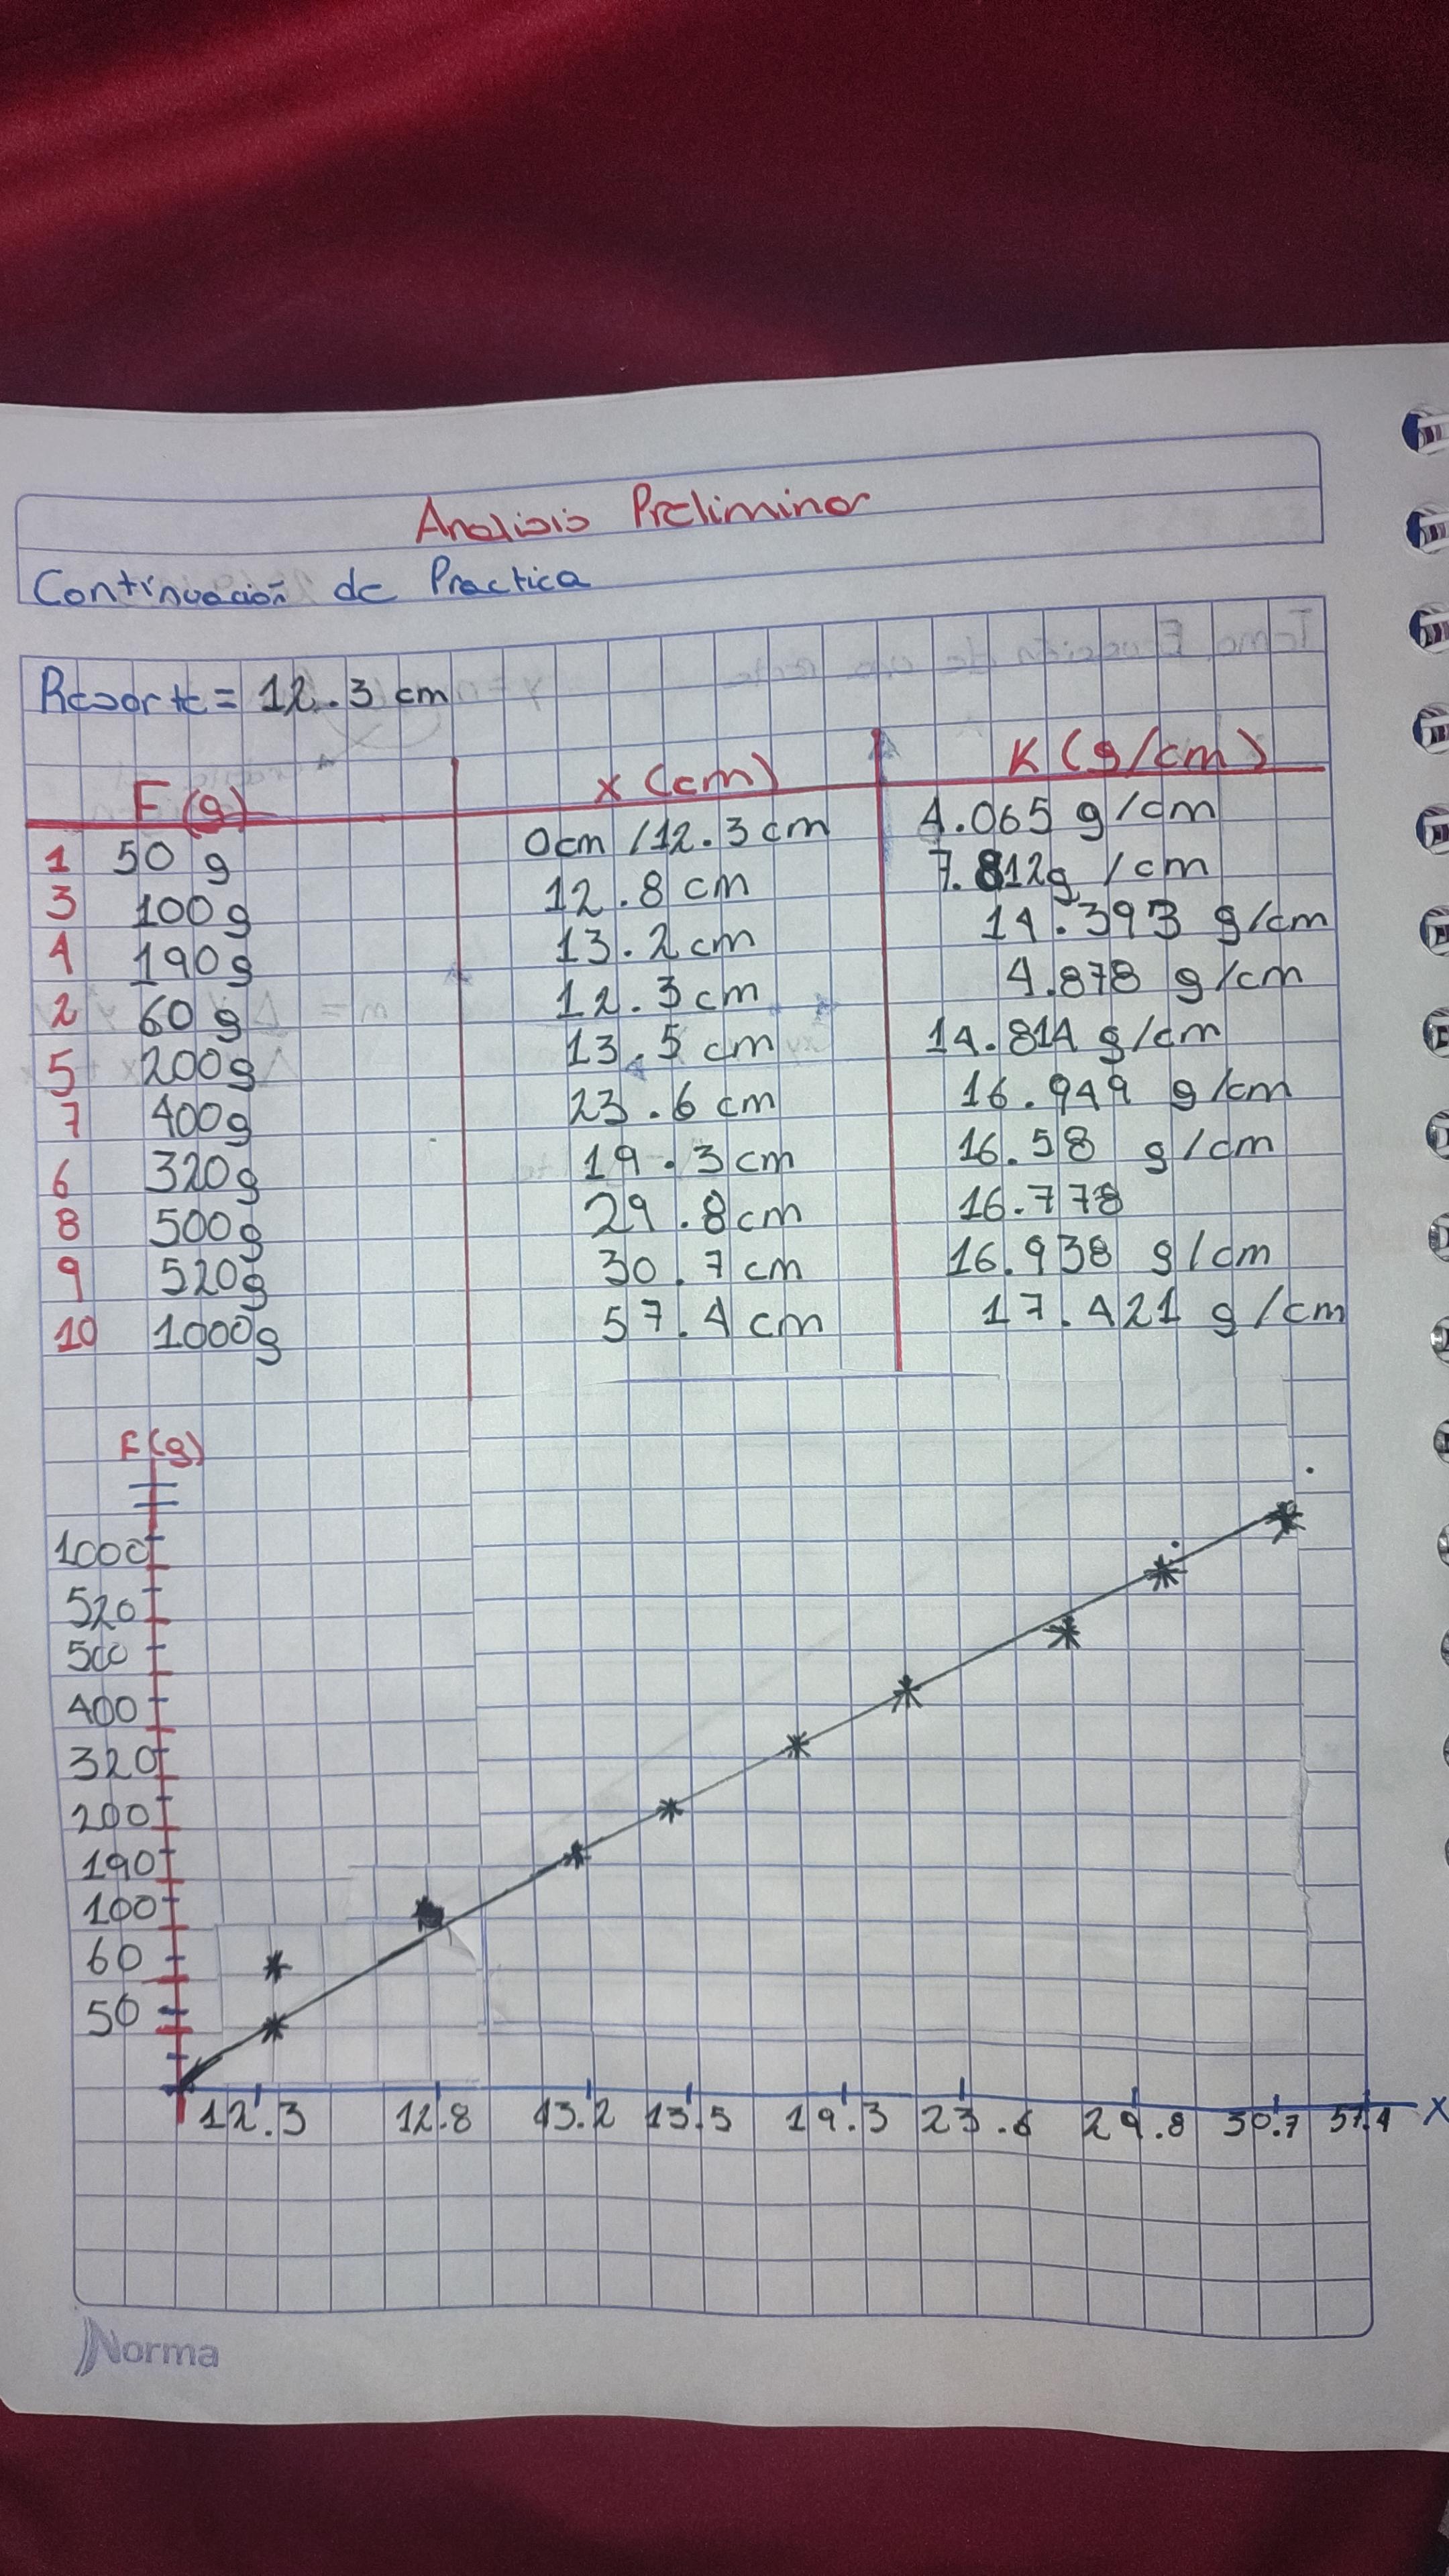 Analisis Preliminar
Continuación de Practica
Resorte = 12.3 cm
F (g) x (cm) K (g/cm)
1 50 g 0cm /12.3 cm 4.065 g/cm
3 100g 12.8 cm 7.812g /cm
4 190g 13.2 cm 14.393 g/cm
2 60 g 12.3 cm 4.878 g/cm
5 200g 13.5 cm 14.814 g/cm
7 400g 23.6 cm 16.949 g/cm
6 320g 19.3 cm 16.58 g/cm
8 500g 29.8 cm 16.778
9 520g 30.7 cm 16.938 g/cm
10 1000g 57.4 cm 17.421 g/cm
F(g)
1000
520
500
400
320
200
190
100
60
50
12.3 12.8 13.2 13.5 19.3 23.6 29.8 30.7 57.4 X
Norma